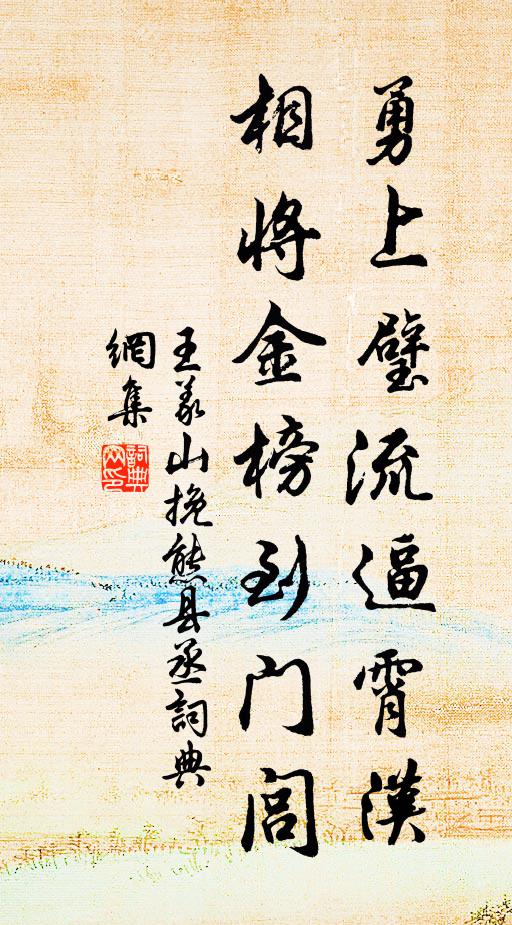 勇上璧流逼霄漢
相将金榜到门閭
王义山挽熊县丞詞典
網集
詞典
网印